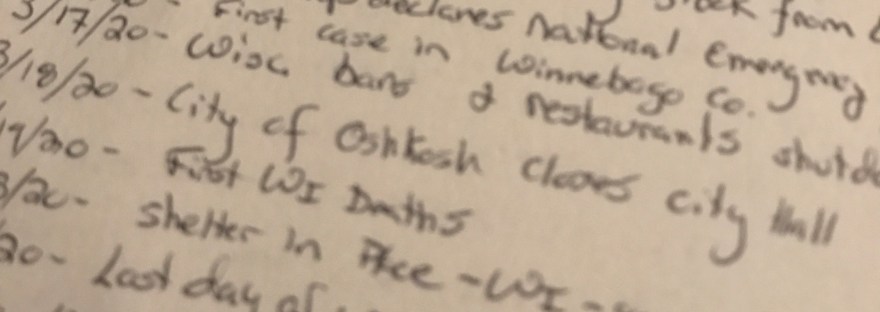 stock from
declares national emergency
First case in Winnebago Co.
3/17/20- Wisc bars & restaurants shutdo
3/18/20 - City of Oshkosh closes city Hall
19/20 - First WI Deaths
/20- shelter in Place - WI -
20- Last day of